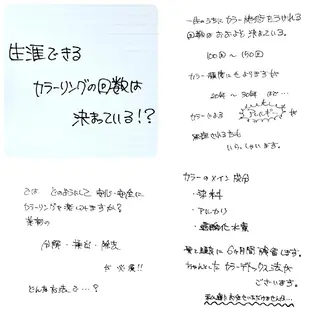 生涯できる
カラーリングの回数は
決まっている!?
一生のうちにカラー施術をうけれる
回数はおおよそ決まっている。
100回〜150回
カラー頻度にもよりますが
20年〜30年ほど…
カラーによる
いらっしゃいます。
では、どのようにして安心・安全に
カラーリングを楽しめますか?
薬剤の
分解・補給・除去
が必要!!
どんな方法で…?
カラーのメイン成分
・染料
・アルカリ
・過酸化水素
髪と頭皮に6ヶ月間残留します。
ちゃんとしたカラーデトックス法が
ございます。